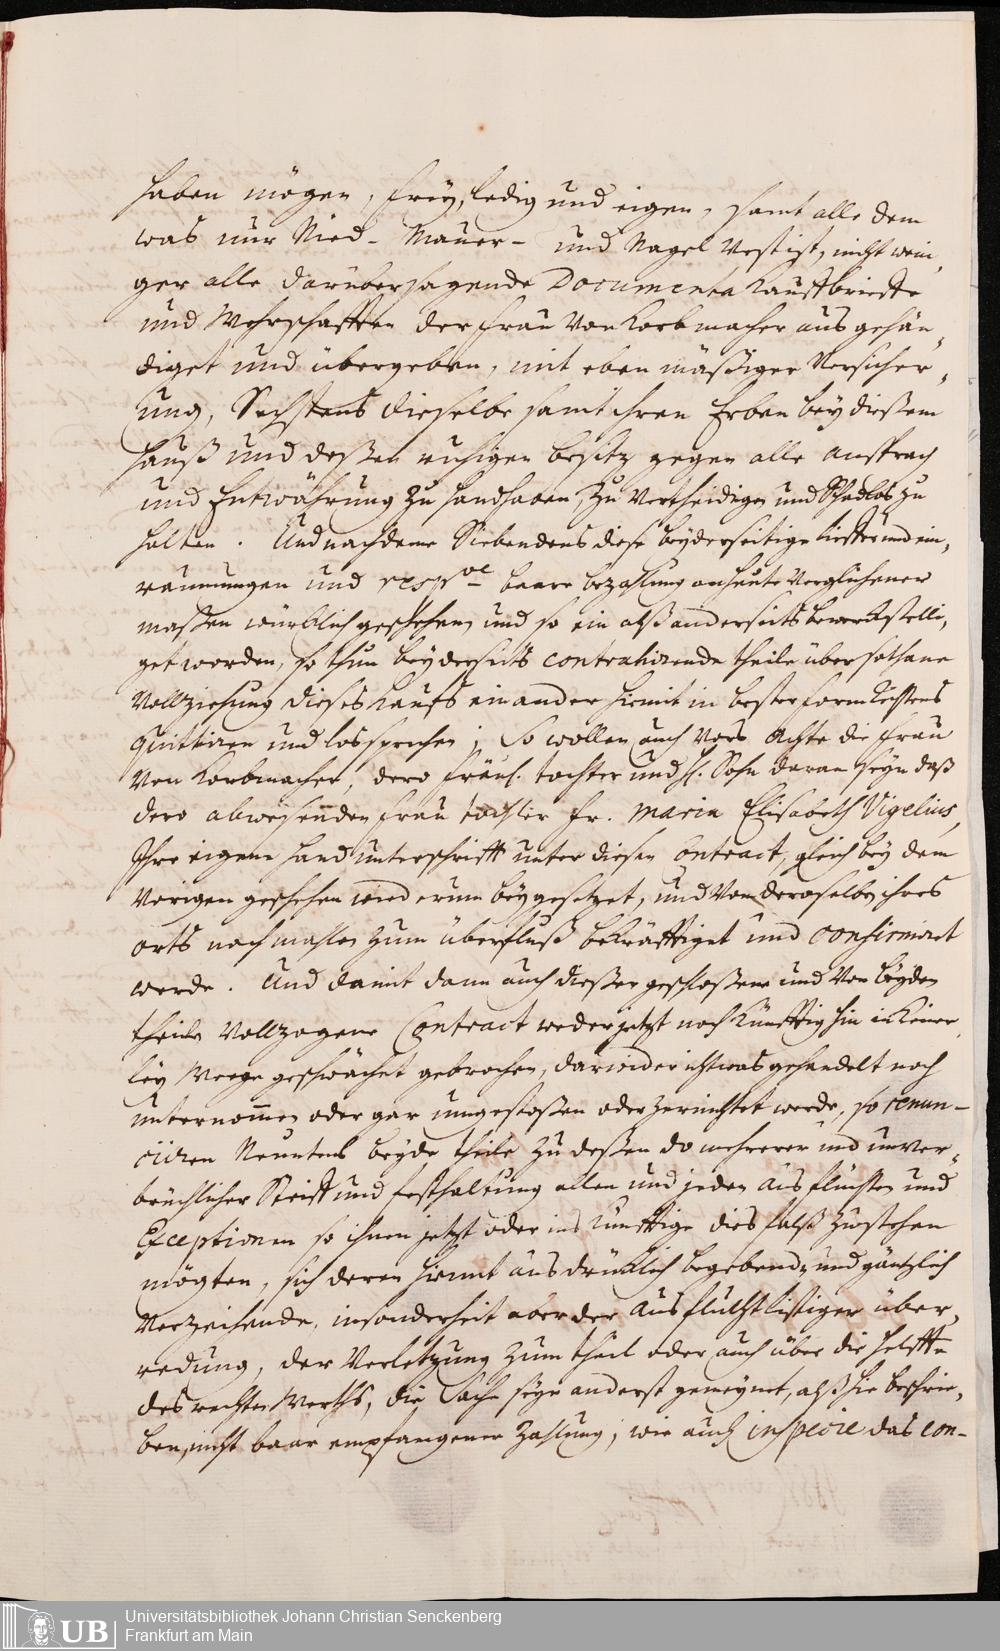 haben mögen, frey, ledig und eigen, samt alle dem
was nur Nied- Mauer- und Nagel Vest ist, nicht weni,
ger alle darüber sagende Documenta Kauffbrieffe
und Wehrschafften der Frau von Korbmacher ausgehän,
diget und übergeben, mit eben mäßiger Versicher,
ung, Sechstens dieselbe samt ihren Erben bey dießem
Hauß und deßen ruhigen besitz gegen alle ansprach
und Entwährung zu handhaben, zu vertheidigen und Schadlos zu
halten. Und nachdeme Siebendens diese beyderseitige lieffer und ein,
raumungen und respve baare bezahlung an heute Verglichener
maßen würcklich geschehen, und so ein alß anderseits bewerckstelli,
get worden, so thun beyderseits contrahirende theile über sothane
Vollziehung dieses Kaufs einander hiemit in bester form Rechtens
quittiren und lossprechen; So wollen auch Vors Achte die Frau
von Korbmacher, dero Fräul. tochter und H. Sohn daran seyn daß
dero abwesenden Frau tochter Fr. Maria Elisabeth Vigelius,
Ihre eigene Hand unterschrifft unter diesen Contract, gleich bey dem
Vorigen geschehen wiederum beygesetzet, und Von deroselben ihres
orts nochmahlen zum überfluß bekräfftiget und confirmiret
werde. Und damit dann auch dießer geschloßene und Von beyden
theilen Vollzogene Contract weder jetzt noch künfftighin in keiner
ley Weege geschwächet gebrochen, darwider ichtwas gehandelt noch
unternommen oder gar umgestoßen oder zernichtet werde, so renun-
ciiren Neuntens beyde theile zu deßen do mehrerer und unver,
brüchlicher Steiff und festhaltung allen und jeden Ausflüchten und
Exceptionen so ihnen jetzt oder ins künfftige diesfalß zustehen
mögten, sich deren hiemit ausdrücklich begebend, und gäntzlich
Verzeihende, insonderheit aber der Ausflucht listiger über,
redung, der Verletzung zum theil oder auch über die helffte
des rechten Werths, die Sache seye anderst gemeynet, alß hie beschrie,
ben, nicht baar empfangener Zahlung, wie auch in specie das con-
Universitätsbibliothek Johann Christian Senckenberg
Frankfurt am Main
UB